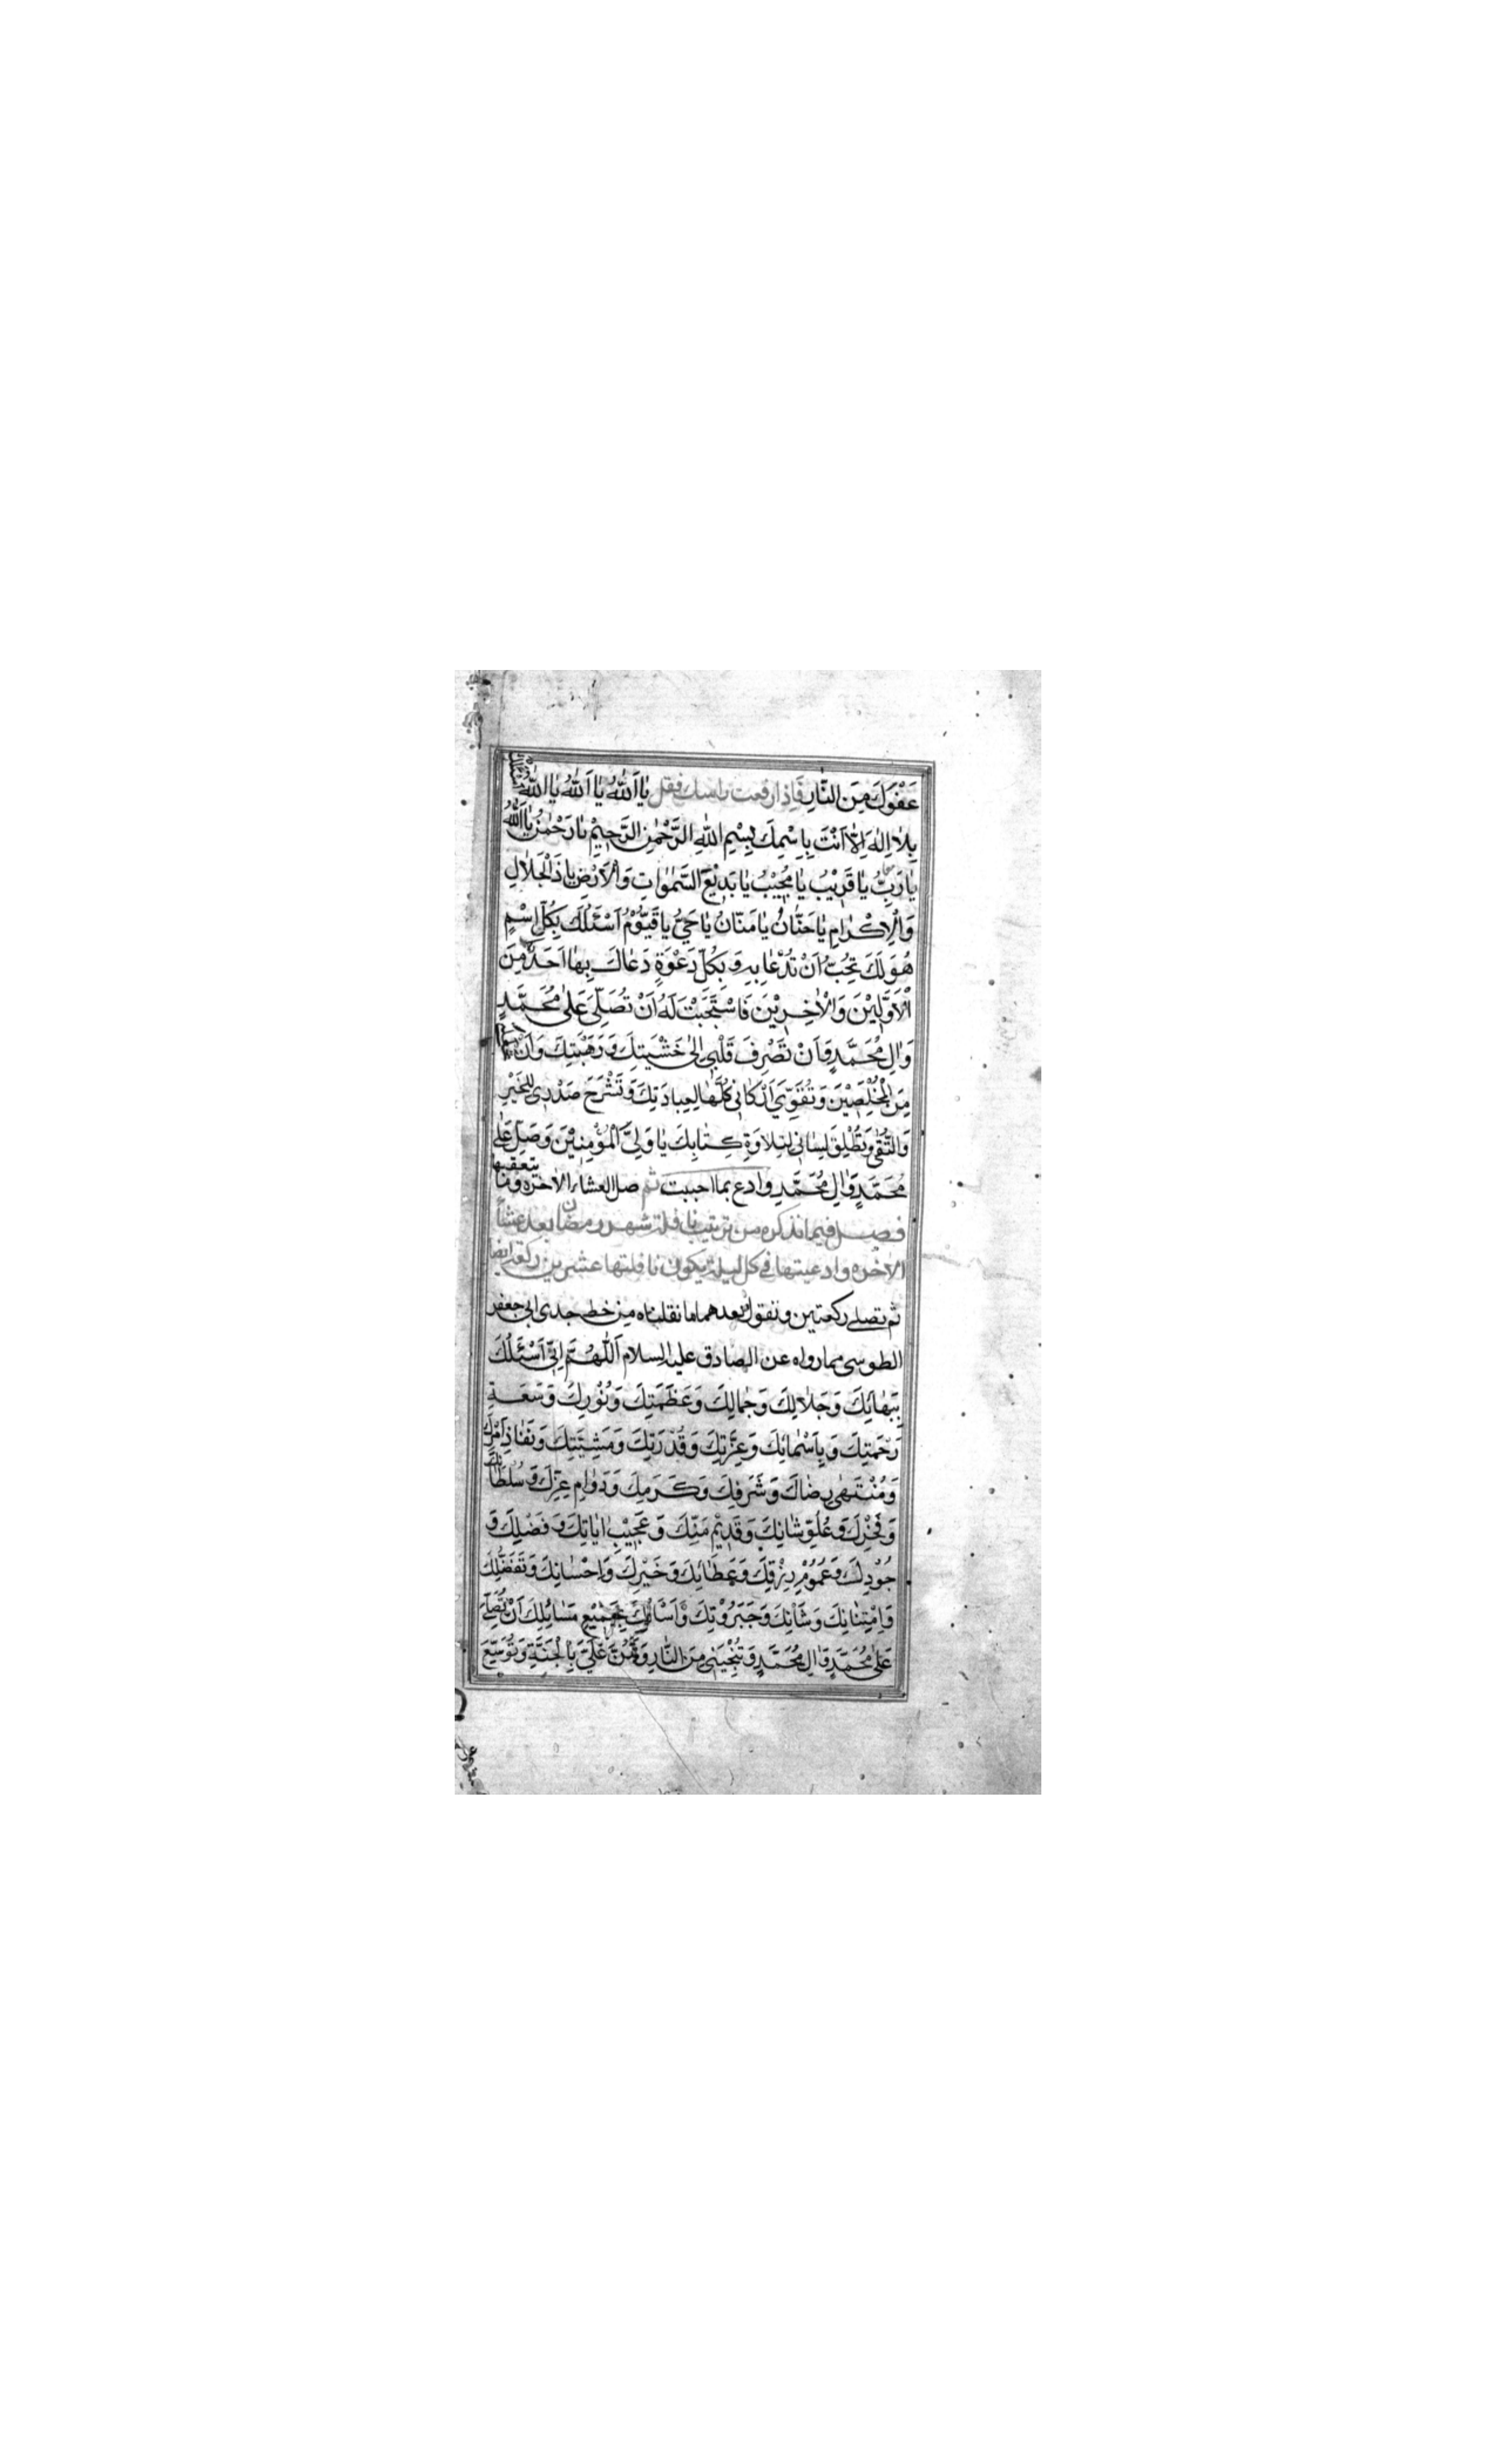 عَفْوَكَ مِنَ النَّارِ فَاِذا رفعت راسك فقل يٰا اَللّٰهُ يٰا اَللّٰهُ يٰا اَللّٰهُ
بِلاٰ اِلٰهَ اِلّٰا اَنْتَ بِاِسْمِكَ بِسْمِ اللّٰهِ الرَّحْمٰنِ الرَّحِيْمِ يٰا رَحْمٰنُ يٰا اَللّٰهُ
يٰا رَبِّ يٰا قَرِيْبُ يٰا مُجِيْبُ يٰا بَدِيْعَ السَّمٰوٰاتِ وَالْاَرْضِ يٰا ذَا الْجَلٰالِ
وَالْاِكْرٰامِ يٰا حَنّٰانُ يٰا مَنّٰانُ يٰا حَيُّ يٰا قَيُّوْمُ اَسْئَلُكَ بِكُلِّ اِسْمٍ
هُوَ لَكَ تُحِبُّ اَنْ تُدْعٰا بِهِ وَ بِكُلِّ دَعْوَةٍ دَعٰاكَ بِهٰا اَحَدٌ مِنَ
الْاَوَّلِيْنَ وَالْاٰخِرِيْنَ فَاسْتَجَبْتَ لَهُ اَنْ تُصَلِّيَ عَلٰى مُحَمَّدٍ
وَاٰلِ مُحَمَّدٍ وَاَنْ تَصْرِفَ قَلْبِي اِلٰى خَشْيَتِكَ وَرَهْبَتِكَ وَاَنْ
مِنَ الْمُخْلَصِيْنَ وَتُقَوِّيَ اَرْكٰانِي كُلَّهٰا لِعِبٰادَتِكَ وَتَشْرَحَ صَدْرِي لِلْخَيْرِ
وَالتُّقٰى وَتُطْلِقَ لِسٰانِي لِتِلاٰوَةِ كِتٰابِكَ يٰا وَلِيَّ الْمُؤْمِنِيْنَ وَصَلِّ عَلٰى
مُحَمَّدٍ وَاٰلِ مُحَمَّدٍ وادع بما احببت ثم صل العشاء الاخره وما يتعقبها
فصل فيما نذكره من ترتيب نافلة شهر رمضان بعد عشاء
الاخره وادعيتها في كل ليلة يكون نافلتها عشرين ركعة ايضا
ثم تصلي ركعتين وتقول بعدهما ما نقلناه من خط جدي ابي جعفر
الطوسي مما رواه عن الصادق عليه السلام اَللّٰهُمَّ اِنِّي اَسْئَلُكَ
بِبَهٰائِكَ وَجَلاٰلِكَ وَجَمٰالِكَ وَعَظَمَتِكَ وَنُوْرِكَ وَسَعَةِ
رَحْمَتِكَ وَبِاَسْمٰائِكَ وَعِزَّتِكَ وَقُدْرَتِكَ وَمَشِيَّتِكَ وَنَفٰاذِ اَمْرِكَ
وَمُنْتَهٰى رِضٰاكَ وَشَرَفِكَ وَكَرَمِكَ وَدَوٰامِ عِزِّكَ وَسُلْطٰانِكَ
وَفَخْرِكَ وَعُلُوِّ شٰانِكَ وَقَدِيْمِ مَنِّكَ وَعَجِيْبِ اٰيٰاتِكَ وَفَضْلِكَ وَ
جُوْدِكَ وَعُمُوْمِ رِزْقِكَ وَعَطٰائِكَ وَخَيْرِكَ وَاِحْسٰانِكَ وَتَفَضُّلِكَ
وَاِمْتِنٰانِكَ وَشَاْنِكَ وَجَبَرُوْتِكَ وَاَسْاَلُكَ بِجَمِيْعِ مَسٰائِلِكَ اَنْ تُصَلِّيَ
عَلٰى مُحَمَّدٍ وَاٰلِ مُحَمَّدٍ وَتُنْجِيَنِي مِنَ النّٰارِ وَتَمُنَّ عَلَيَّ بِالْجَنَّةِ وَتُوَسِّعَ